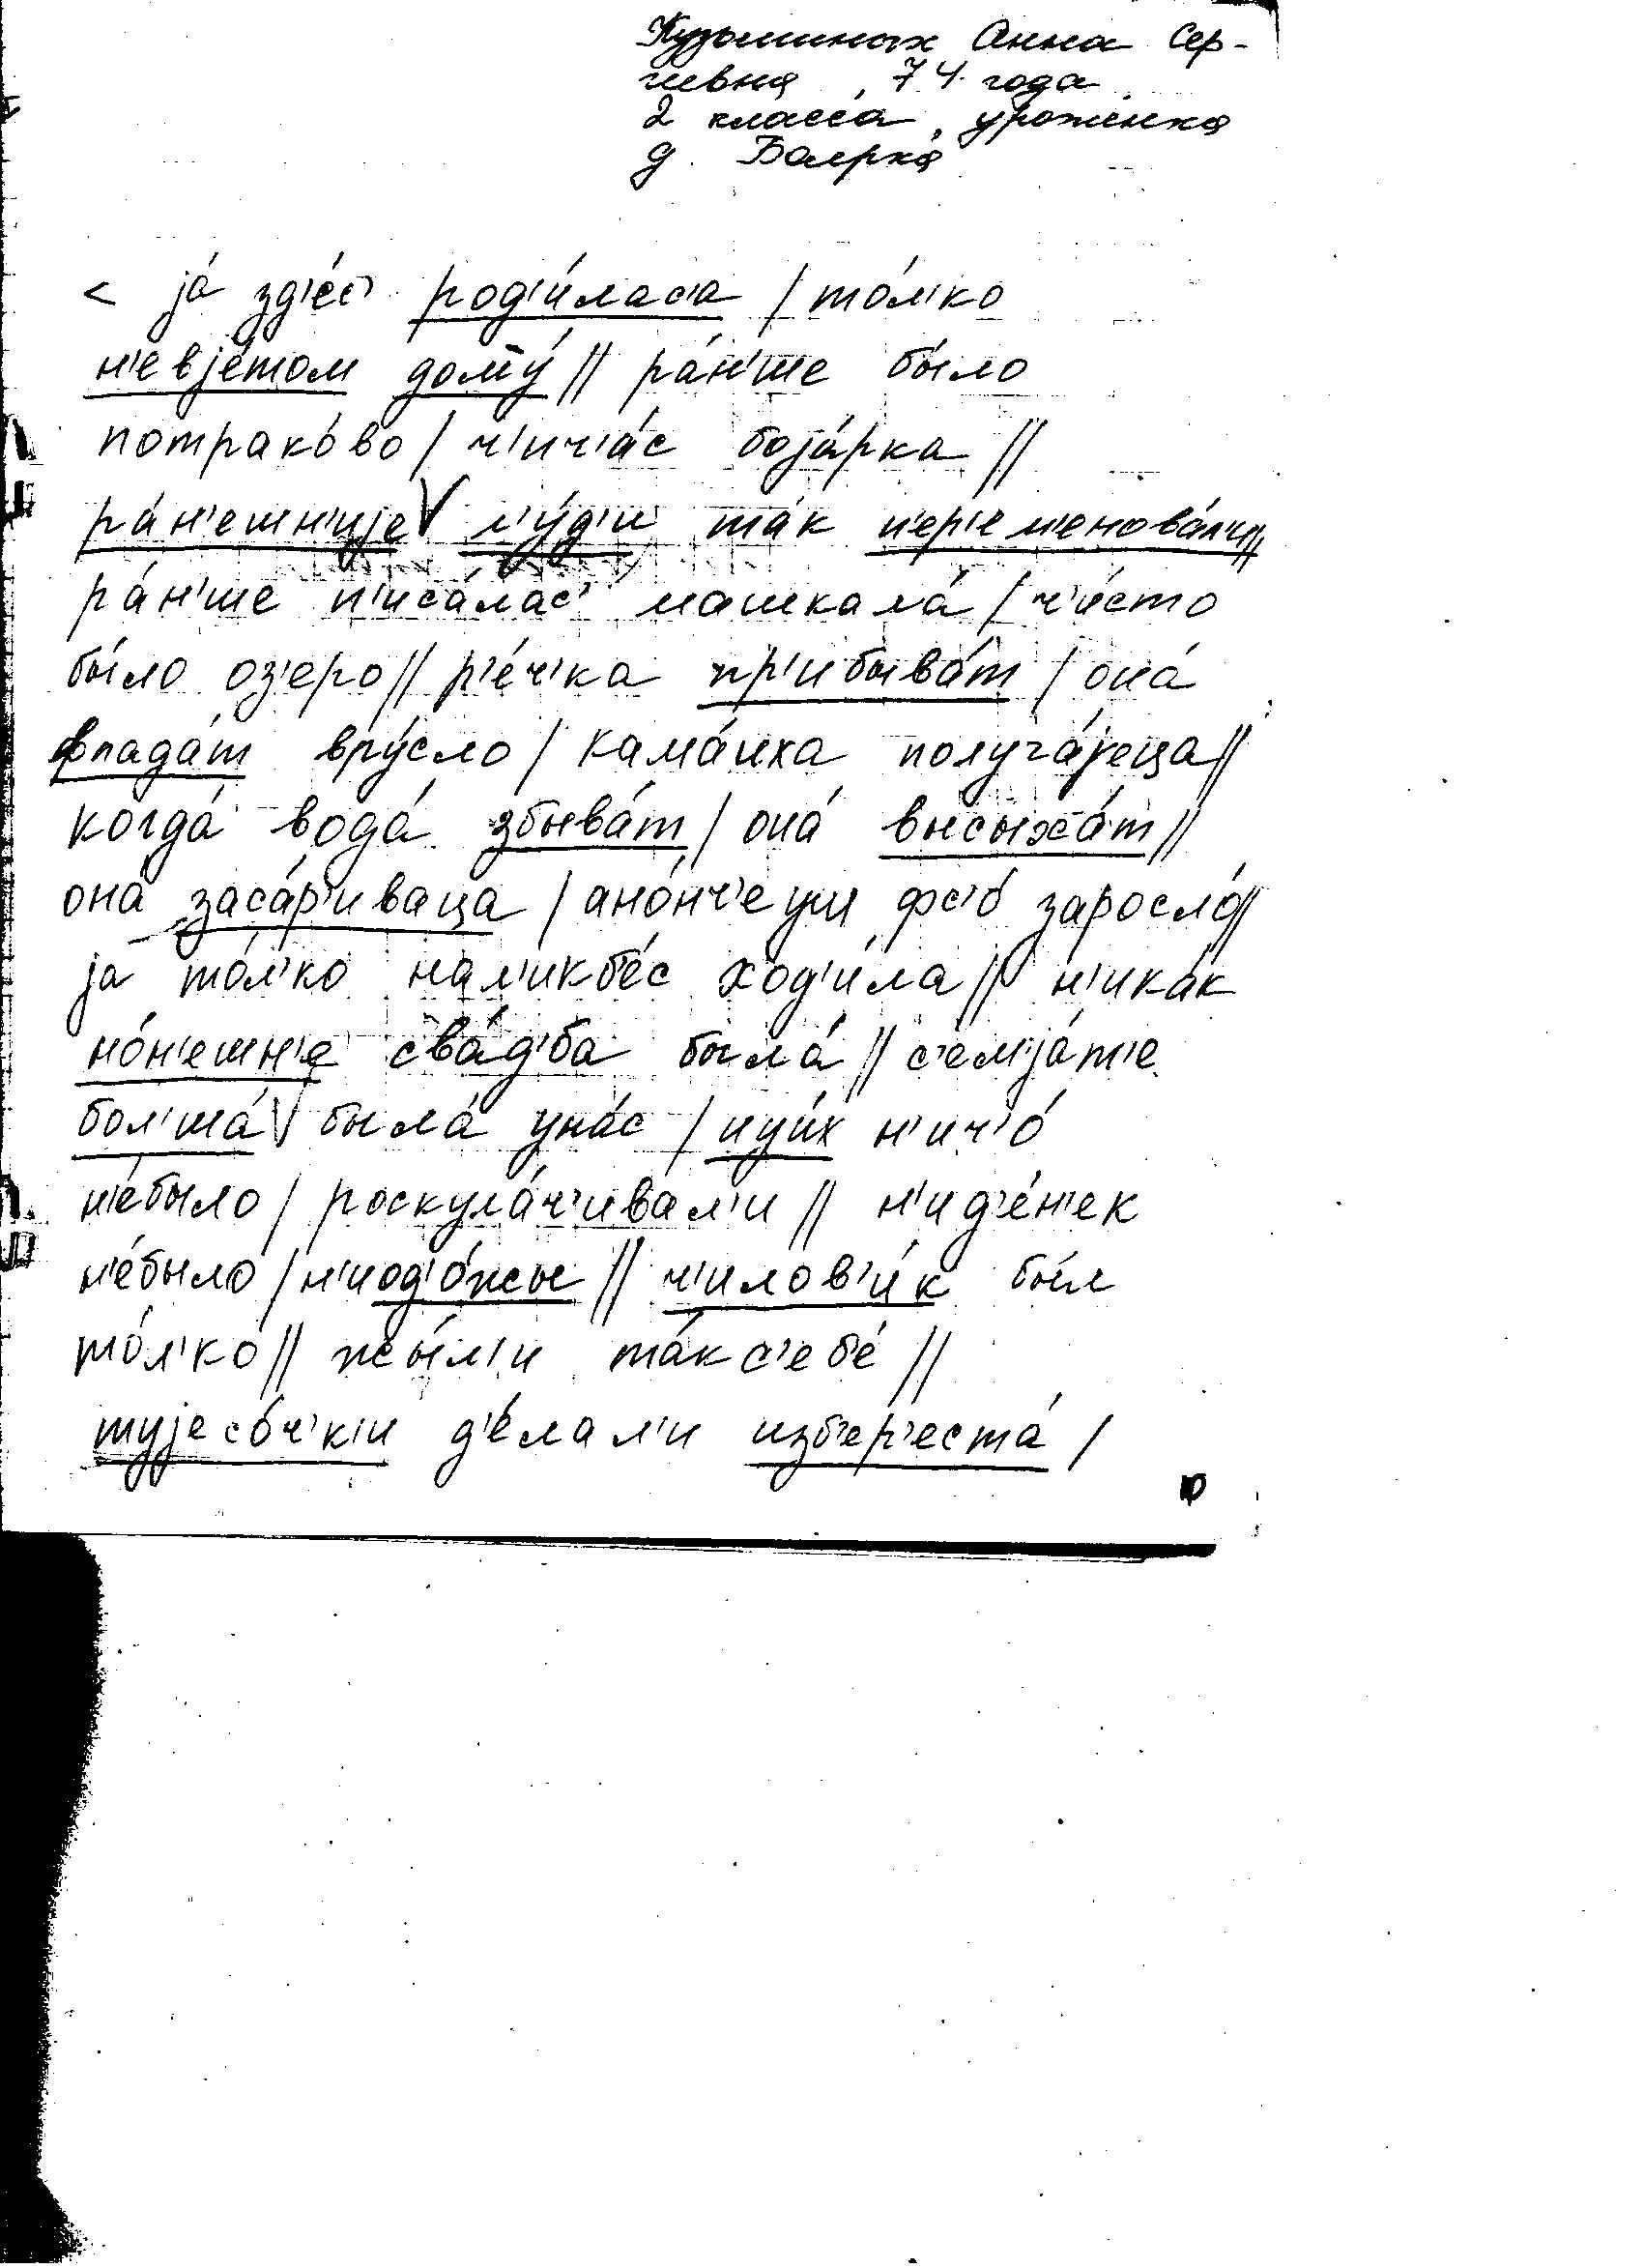 Кузьминых Анна Сер-
геевна, 74 года
2 класса, уроженка
д. Баерка
< jа́ зд'е́с' род'и́лас'а / то́л'ко
н'евjе́том дому́ // ра́н'ше бы́ло
потрако́во / ч'ич'а́с боjа́рка //
ра́н'ешн'иjе л'у́д'и та́к п'ер'ем'енова́л'и //
ра́н'ше п'иса́лас' машкала́ / ч'и́сто
бы́ло оз'еро // р'е́ч'ка пр'ибыва́т / она́
фпада́т вру́сло / кама́иха получа́jеца //
когда́ вода́ збыва́т / она́ высыха́т //
она́ заса́р'иваца / ано́нч'е уш фс'о́ заросло́ //
jа́ то́л'ко нал'икб'е́с ход'и́ла // н'ика́к
но́н'ешн'е сва́д'ба была́ // с'ем'jа́т'е
бол'ша́ была́ уна́с / иуи́х н'ич'о́
н'е́было / роскула́ч'ивал'и // н'ид'е́н'ек
н'е́было / н'иод'о́жы // ч'илов'и́к бы́л
то́л'ко // жы́л'и та́кс'еб'е́ //
туjесо́ч'к'и д'е́лал'и изб'ер'еста́ /